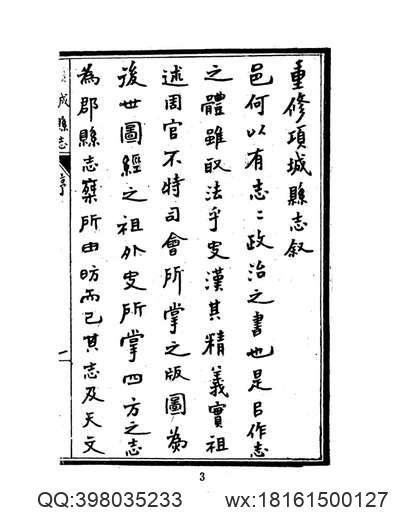 重修項城縣志叙
邑何以有志志政治之書也是㠯作志
之體雖取法乎史漢其精義實祖
述周官不特司會所掌之版圖為
後世圖經之祖外史所掌四方之志
為郡縣志乘所由昉而已其志及天文
成縣志
序
一
3
QQ:398035233 wx:18161500127